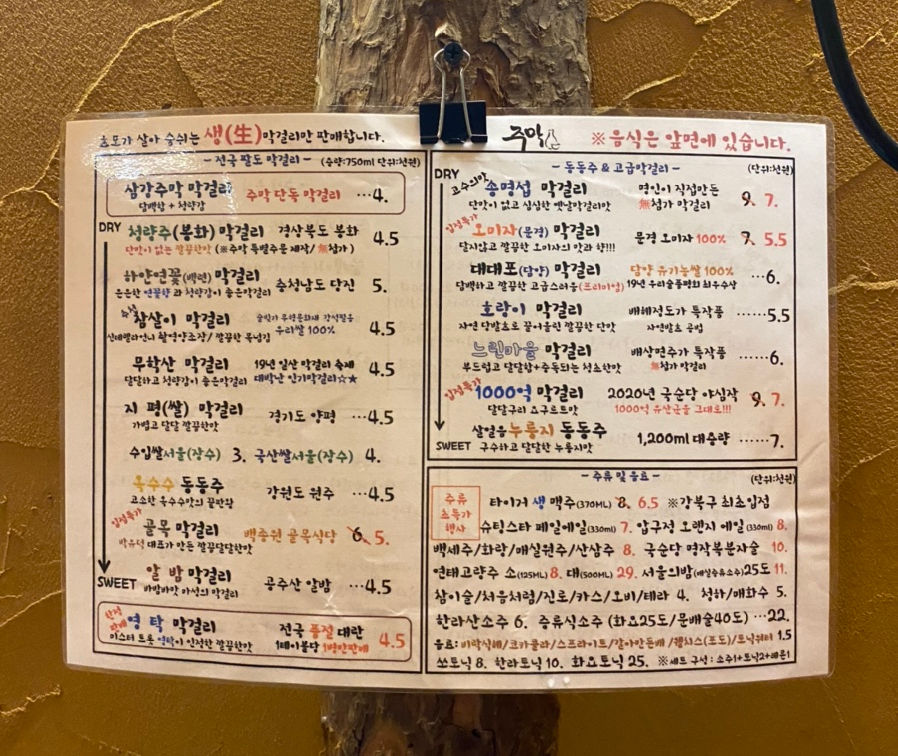 효모가 살아 숨쉬는 생(生)막걸리만 판매합니다.
- 전국 팔도 막걸리 - (용량:750ml 단위:천원)
삼강주막 막걸리 주막 단독 막걸리 ···4.
담백함 + 청량감
DRY
청량주(봉화) 막걸리 경상북도 봉화 4.5
단맛이 없는 깔끔한맛 (※주막 특별주문 제작/ 無첨가)
하얀연꽃(백련) 막걸리 충청남도 당진 5.
은은한 연꽃향과 청량감이 좋은막걸리
참살이 막걸리 우리쌀 100% 4.5
신데렐라언니 촬영양조장/ 깔끔한 목넘김
무학산 막걸리 19년 일산 막걸리 축제 4.5
달달하고 청량감이 좋은막걸리 대박난 인기막걸리☆★
지 평(쌀) 막걸리 경기도 양평 ···4.5
가볍고 달달 깔끔한맛
수입쌀서울(장수) 3. 국산쌀서울(장수) 4.
옥수수 동동주 강원도 원주 ···4.5
고소한 옥수수맛의 끝판왕
입점특가
골목 막걸리 백종원 골목식당 6. 5.
박유덕 대표가 만든 깔끔달달한맛
알 밤 막걸리 공주산 알밤 ···4.5
SWEET
바밤바맛 마성의 막걸리
한정판매
영 탁 막걸리 전국 품절 대란 4.5
미스터 트롯 영탁이 인정한 깔끔한맛 1테이블당 1병만판매
주막 ※음식은 앞면에 있습니다.
- 동동주 & 고급막걸리 - (단위:천원)
DRY
고수의맛 송명섭 막걸리 명인이 직접만든 9. 7.
단맛이 없고 심심한 옛날막걸리맛 無첨가 막걸리
입점특가
오미자(문경) 막걸리 문경 오미자 100% 7. 5.5
달지않고 깔끔한 오미자의 맛과 향!!!
대대포(담양) 막걸리 담양 유기농쌀 100% ···6.
담백하고 깔끔한 고급스러움(프리미엄) 19년 우리술품평회 최우수상
호랑이 막걸리 배혜정도가 특작품 ······5.5
자연 단발효로 끌어올린 깔끔한 단맛 자연발효 공법
느린마을 막걸리 배상면주가 특작품 ······6.
부드럽고 달달함+중독되는 청소한맛 無첨가 막걸리
입점특가
1000억 막걸리 2020년 국순당 야심작 9. 7.
달달구리 요구르트맛 1000억 유산균을 그대로!!!
살얼음누룽지 동동주 1,200ml 대용량 ······7.
SWEET
구수하고 달달한 누룽지맛
- 주류 및 음료 - (단위:천원)
주류
초특가
행사
타이거 생 맥주(370ML) 8. 6.5 ※강북구 최초입점
슈팅스타 페일에일(330ml) 7. 압구정 오렌지 에일(330ml) 8.
백세주/화랑/매실원주/산삼주 8. 국순당 명작복분자술 10.
연태고량주 소(125ML)8. 대(500ML) 29. 서울의밤(매실증류소주)25도 11.
참이슬/처음처럼/진로/카스/오비/테라 4. 청하/매화수 5.
한라산소주 6. 증류식소주 (화요25도/문배술40도) ···22.
음료: 비락식혜/코카콜라/스프라이트/갈아만든배/웰치스(포도)/토닉워터 1.5
쏘토닉 8. 한라토닉 10. 화요토닉 25. ※세트 구성 : 소주1+토닉2+레몬1